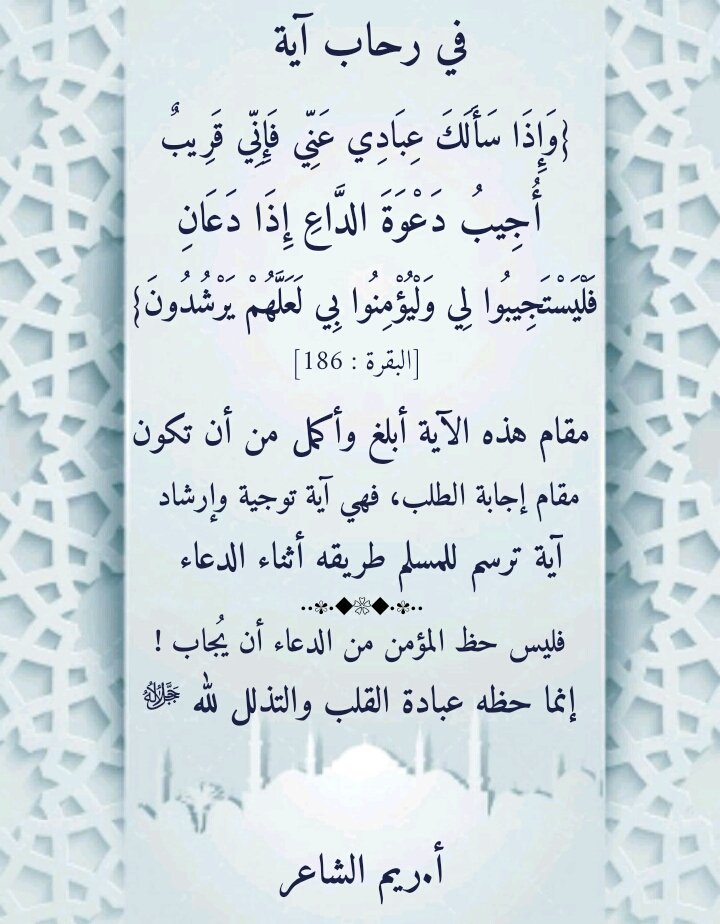 في رحاب آية
{وَإِذَا سَأَلَكَ عِبَادِي عَنِّي فَإِنِّي قَرِيبٌ
أُجِيبُ دَعْوَةَ الدَّاعِ إِذَا دَعَانِ
فَلْيَسْتَجِيبُوا لِي وَلْيُؤْمِنُوا بِي لَعَلَّهُمْ يَرْشُدُونَ}
[البقرة : 186]
مقام هذه الآية أبلغ وأكمل من أن تكون
مقام إجابة الطلب، فهي آية توجية وإرشاد
آية ترسم للمسلم طريقه أثناء الدعاء
فليس حظ المؤمن من الدعاء أن يُجاب !
إنما حظه عبادة القلب والتذلل لله ﷻ
أ.ريم الشاعر